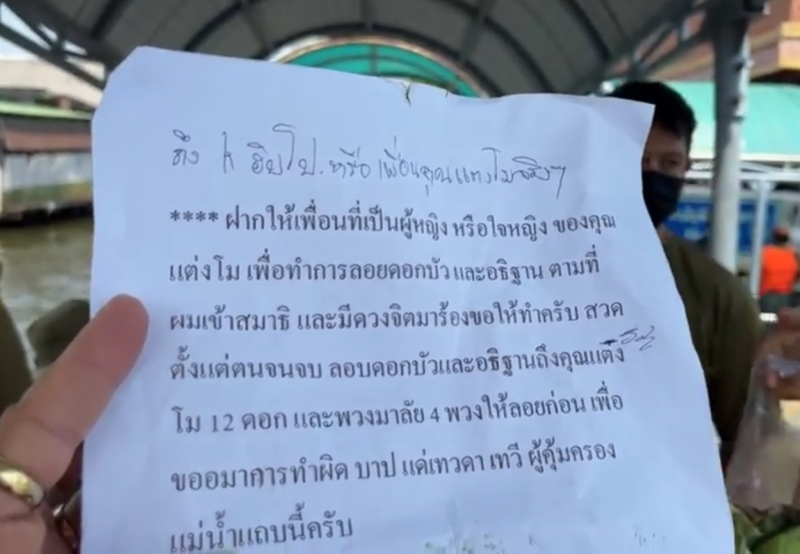 ถึง k ฮิปโป. หรือ เพื่อนคุณแตงโมจริงๆ
**** ฝากให้เพื่อนที่เป็นผู้หญิง หรือใจหญิง ของคุณ
แต่งโม เพื่อทำการลอยดอกบัว และอธิฐาน ตามที่
ผมเข้าสมาธิ และมีดวงจิตมาร้องขอให้ทำครับ สวด
ตั้งแต่ตนจนจบ ลอบดอกบัวและอธิฐานถึงคุณแตง
โม 12 ดอก และพวงมาลัย 4 พวงให้ลอยก่อน เพื่อ
ขออมาการทำผิด บาป แด่เทวดา เทวี ผู้คุ้มครอง
แม่น้ำแถบนี้ครับ